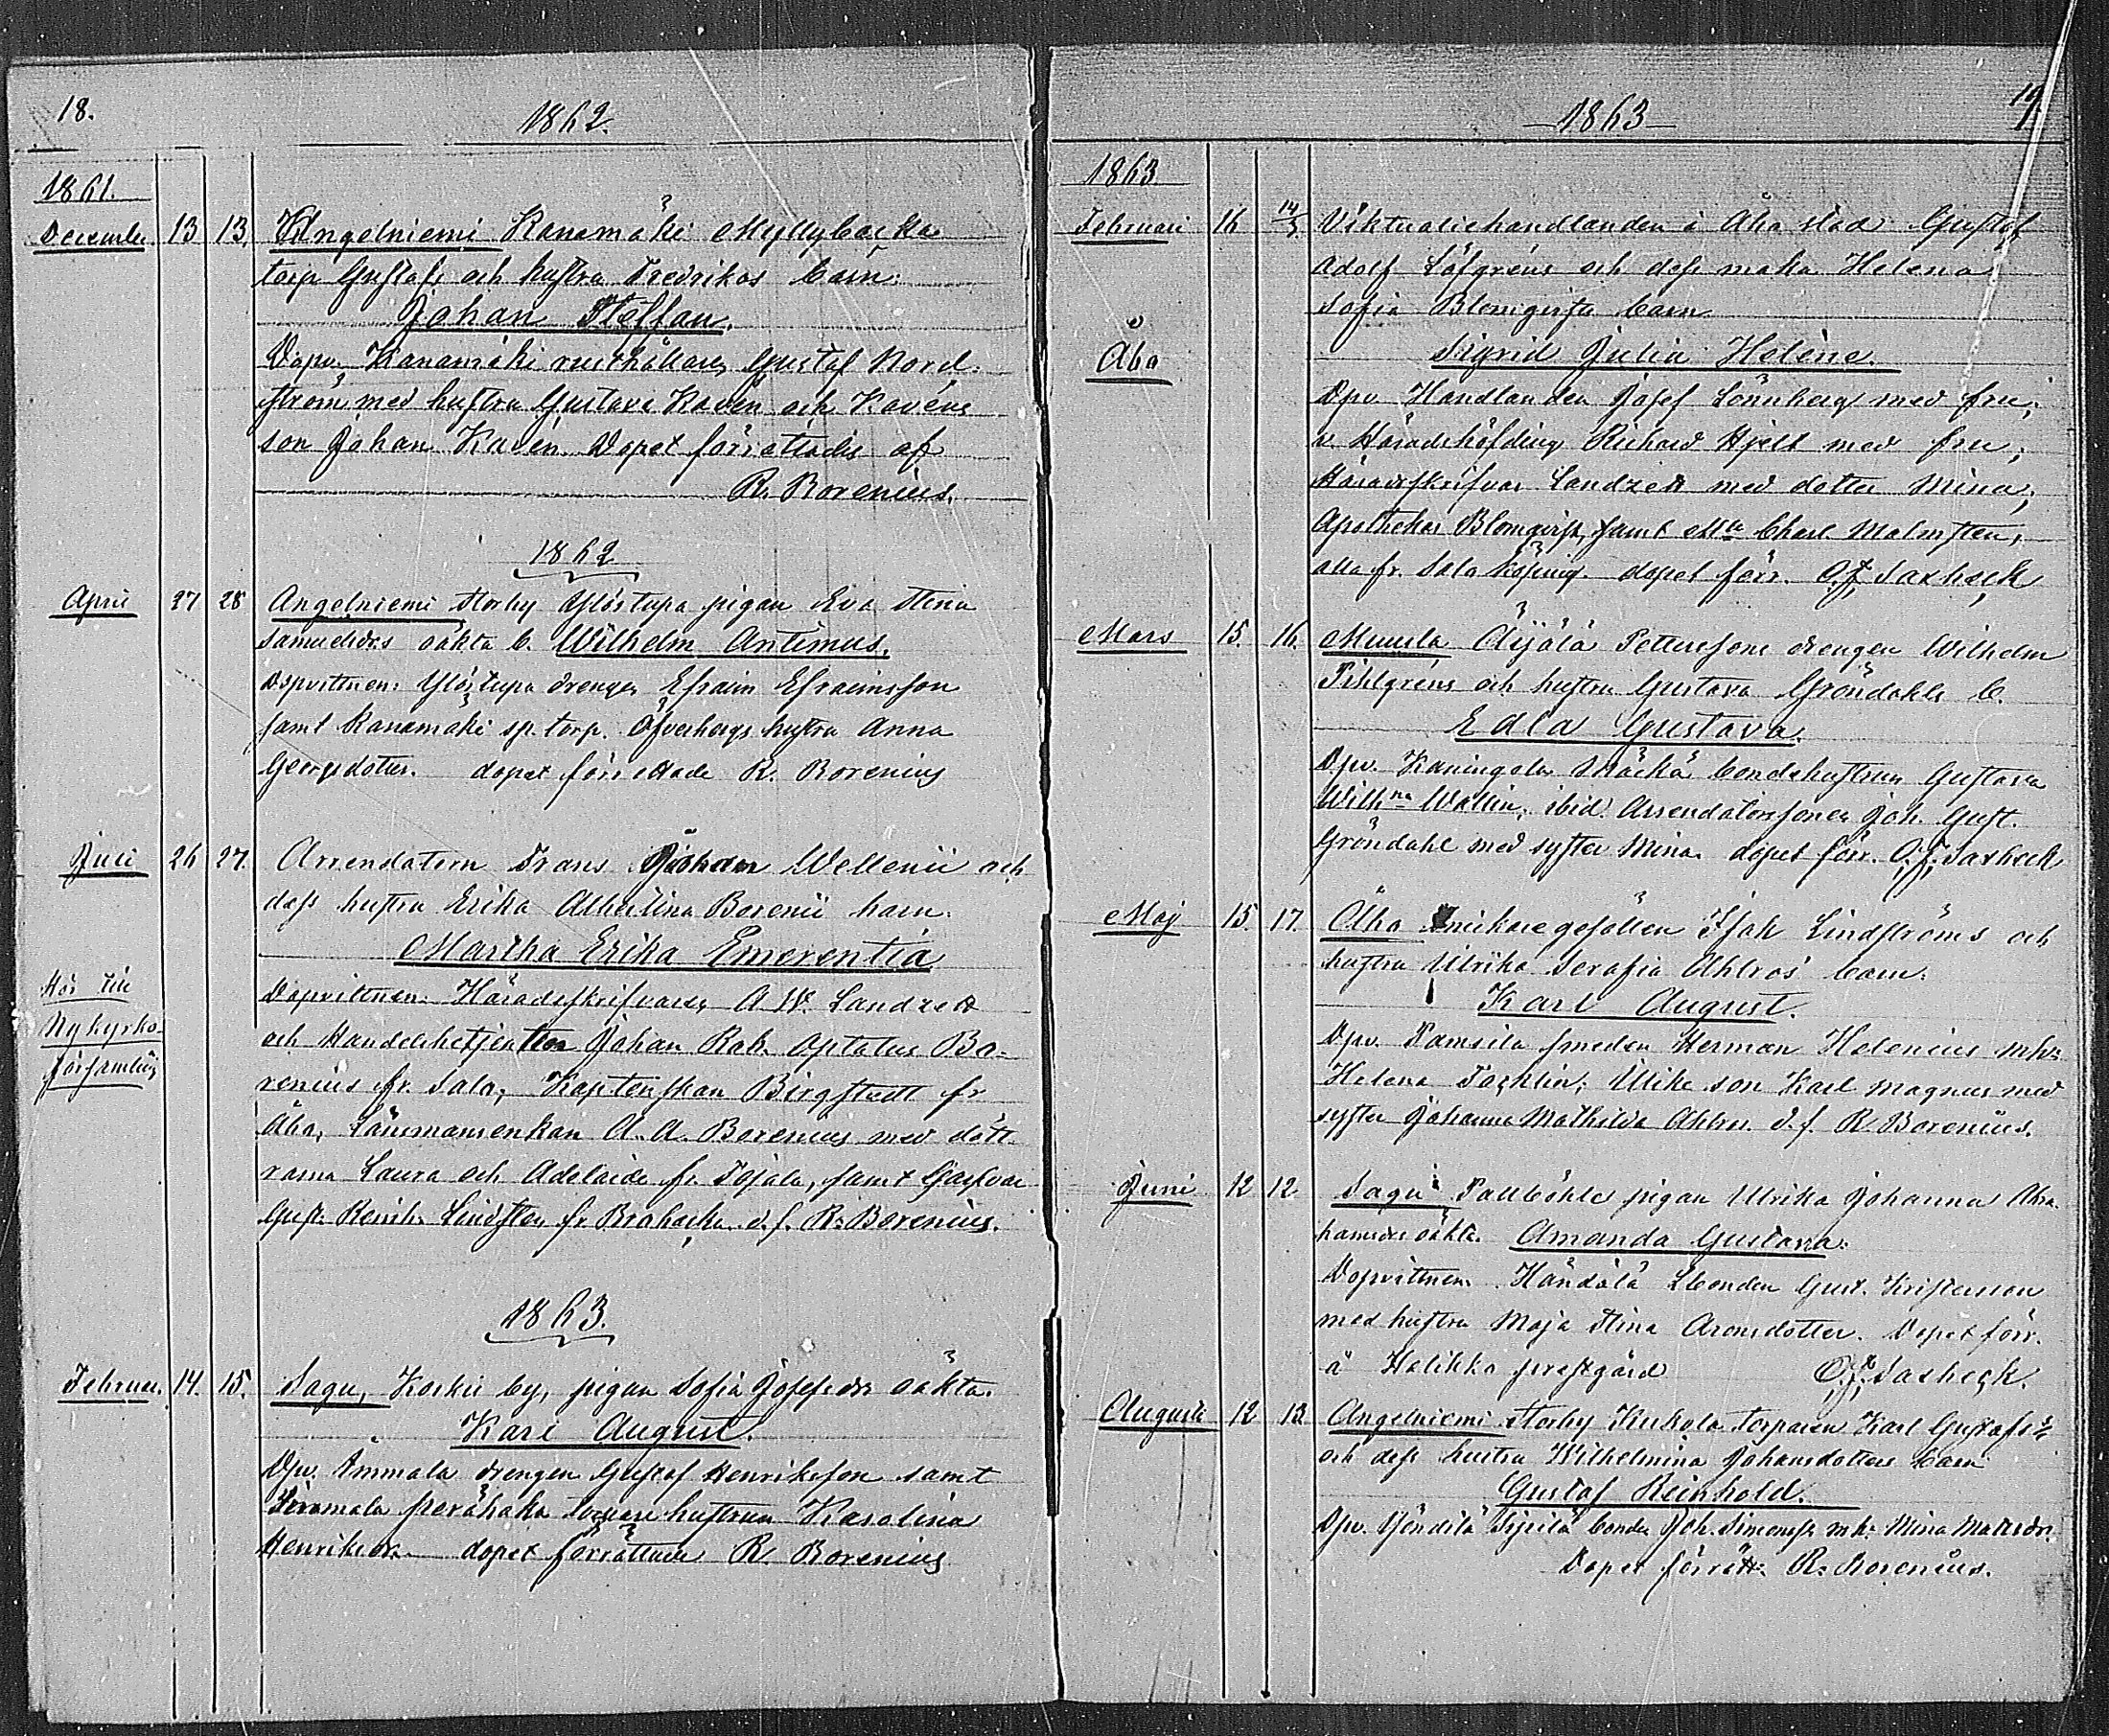 18.
1862.
1861.
December 13 13. Angelniemi Kanamäki Myllybacka
torp. Gustafs och hustru Fredrikas barn:
Johan Steffan.
Dopv. Kanamäki rusthållare Gustaf Nord-
ström med hustru Gustava Kavén och Kavéns
son Johan Kavén. Dopet förrättades af
R. Borenius.
1862
April 27 28 Angelniemi Storby Ylöstupa pigan Eva Stina
Samuelsdrs oäkta b. Wilhelm Antimus.
Dopvittnen: Ylöstupa drengen Efraim Efraimsson
samt Kanamäki sp. torp. Öfverbergs hustru Anna
Georgsdotter. dopet förrättade R. Borenius
Juli 26 27. Arrendatorn Frans Johan Wellenii och
dess hustru Erika Albertina Borenii barn.
Martha Erika Emerentia
Hör till
Nykyrko-
församling
Dopvittnen: Häradsskrifvaren A. W. Landzett
och Handelsbetjenten Johan Rob. Optatus Bo-
renius fr. Salo, Kaptenskan Bergstedt fr
Åbo, Länsmansenkan A. A. Borenius med dött-
rarna Laura och Adelaide fr. Tojala, samt
Gust. Reinh. Lindsten fr. d. f. R. Borenius.
1863.
Februari 14. 15. Sagu, Koskis by, pigan Sofia Josefsdr oäkta.
Karl August.
Dpv. Ammala drengen Gustaf Henriksson samt
perähaka hustrun Karolina
Henriksdr. dopet förrättade R. Borenius
19.
1863
1863
Februari 16 14/3 Viktualiehandlanden i Åbo stad Gustaf
Adolf Löfgréns och dess maka Helena
Sofia Blomqvists barn
Åbo
Sigrid Julia Helène.
Dpv. Handlanden Josef Lönnberg med fru;
v. Häradshöfding Richard Hjelt med fru;
Häradsskrifvar Landzett med dotter Mina;
Apothekar Blomqvist, samt Mll Charl. Malmsten,
alla fr. Salo köping. dopet förr. O. J. Saxbeck
Mars 15. 16. Muurla Äijälä Petterssons drengen Wilhelm
Pihlgréns och hustru Gustava Gröndahls b.
Edla Gustava.
Dpv. Kaningola bondehustrun Gustava
Wilhna Wallin; ibid. Arrendatorssonen Joh. Gust.
Gröndahl med syster Mina. dopet förr. O. J. Saxbeck
Maj 15. 17. Åbo snickaregesällen Isak Lindströms och
hustru Ulrika Serafia Ahlros' barn.
Karl August.
Dpv. Pamsila smeden Herman Helenius mh:
Helena Ulriks son Karl Magnus med
syster Johanna Mathilda Ahlros. d. f. R. Borenius.
Juni 12 12 Sagu Pallböhle pigan Ulrika Johanna Abra-
hamsdrs oäkta. Amanda Gustava.
Dopvittnen. bonden Gust. Kristersson
med hustru Maja Stina Aronsdotter. Dopet förr.
å Halikko prestgård O. J. Saxbeck.
Augusti 12 13. Angelniemi Storby Kukola torparen Karl Gustafs:
och dess hustru Wilhelmina Johansdotters barn
Gustaf Reinhold.
Dpv. bonden Joh. Simonss. mh: Mina Matsdr.
Dopet förrätt: R. Borenius.